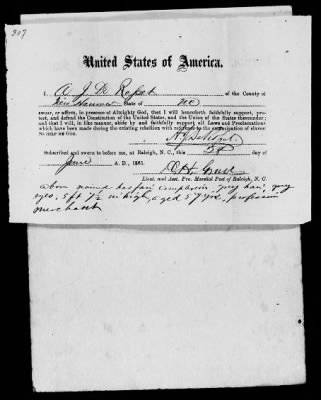 307
United States of America.
I, A J De Rosset of the County of
New Hanover State of NC
swear, or affirm, in presence of Almighty God, that I will henceforth faithfully support, protect,
and defend the Constitution of the United States, and the Union of the States thereunder;
and that I will, in like manner, abide by and faithfully support all Laws and Proclamations
which have been made during the existing rebellion with reference to the emancipation of slaves:
So help me God.
Subscribed and sworn to before me, at Raleigh, N. C., this 5th day of
June A. D., 1865.
Lieut. and Asst. Pro. Marshal Post of Raleigh, N. C.
above named has fair complexion, grey hair, grey
eyes, 5 ft 7½ in high, aged 57 yrs, profession
merchant